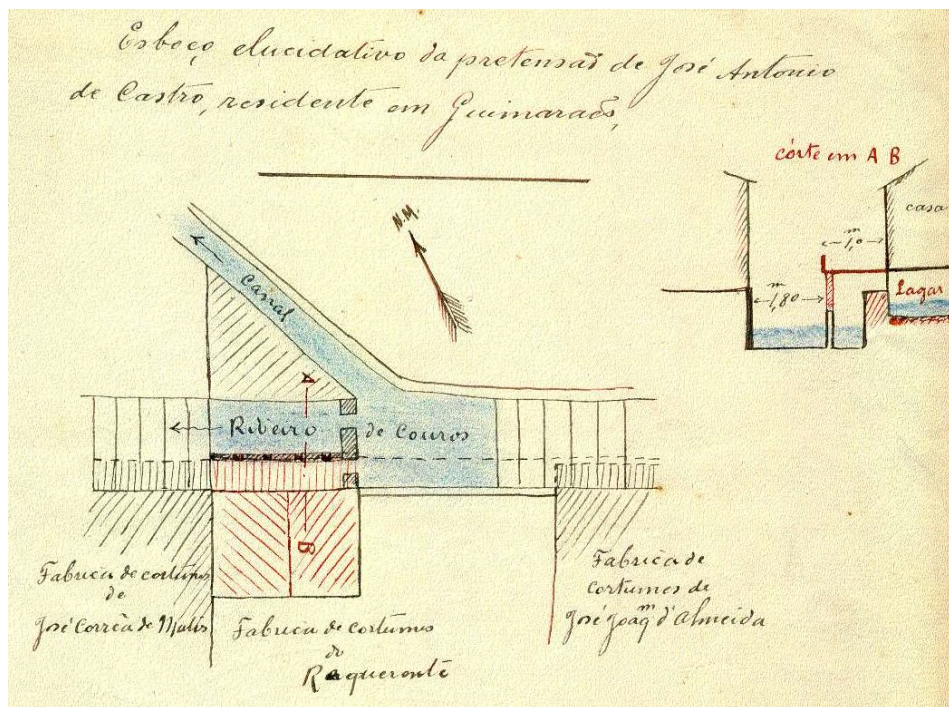 Esboço elucidativo da pretensaõ de José Antonio
de Castro, residente em Guimaraẽs,
córte em A B
N.M.
casa
m
1,0
m
1,80
Lagar
Canal
A
Ribeiro de Couros
B
Fabrica de cortumes
de
José Corrêa de Mattos
Fabrica de cortumes
do
Requerente
Fabrica de
cortumes de
José Joaqm d'Almeida